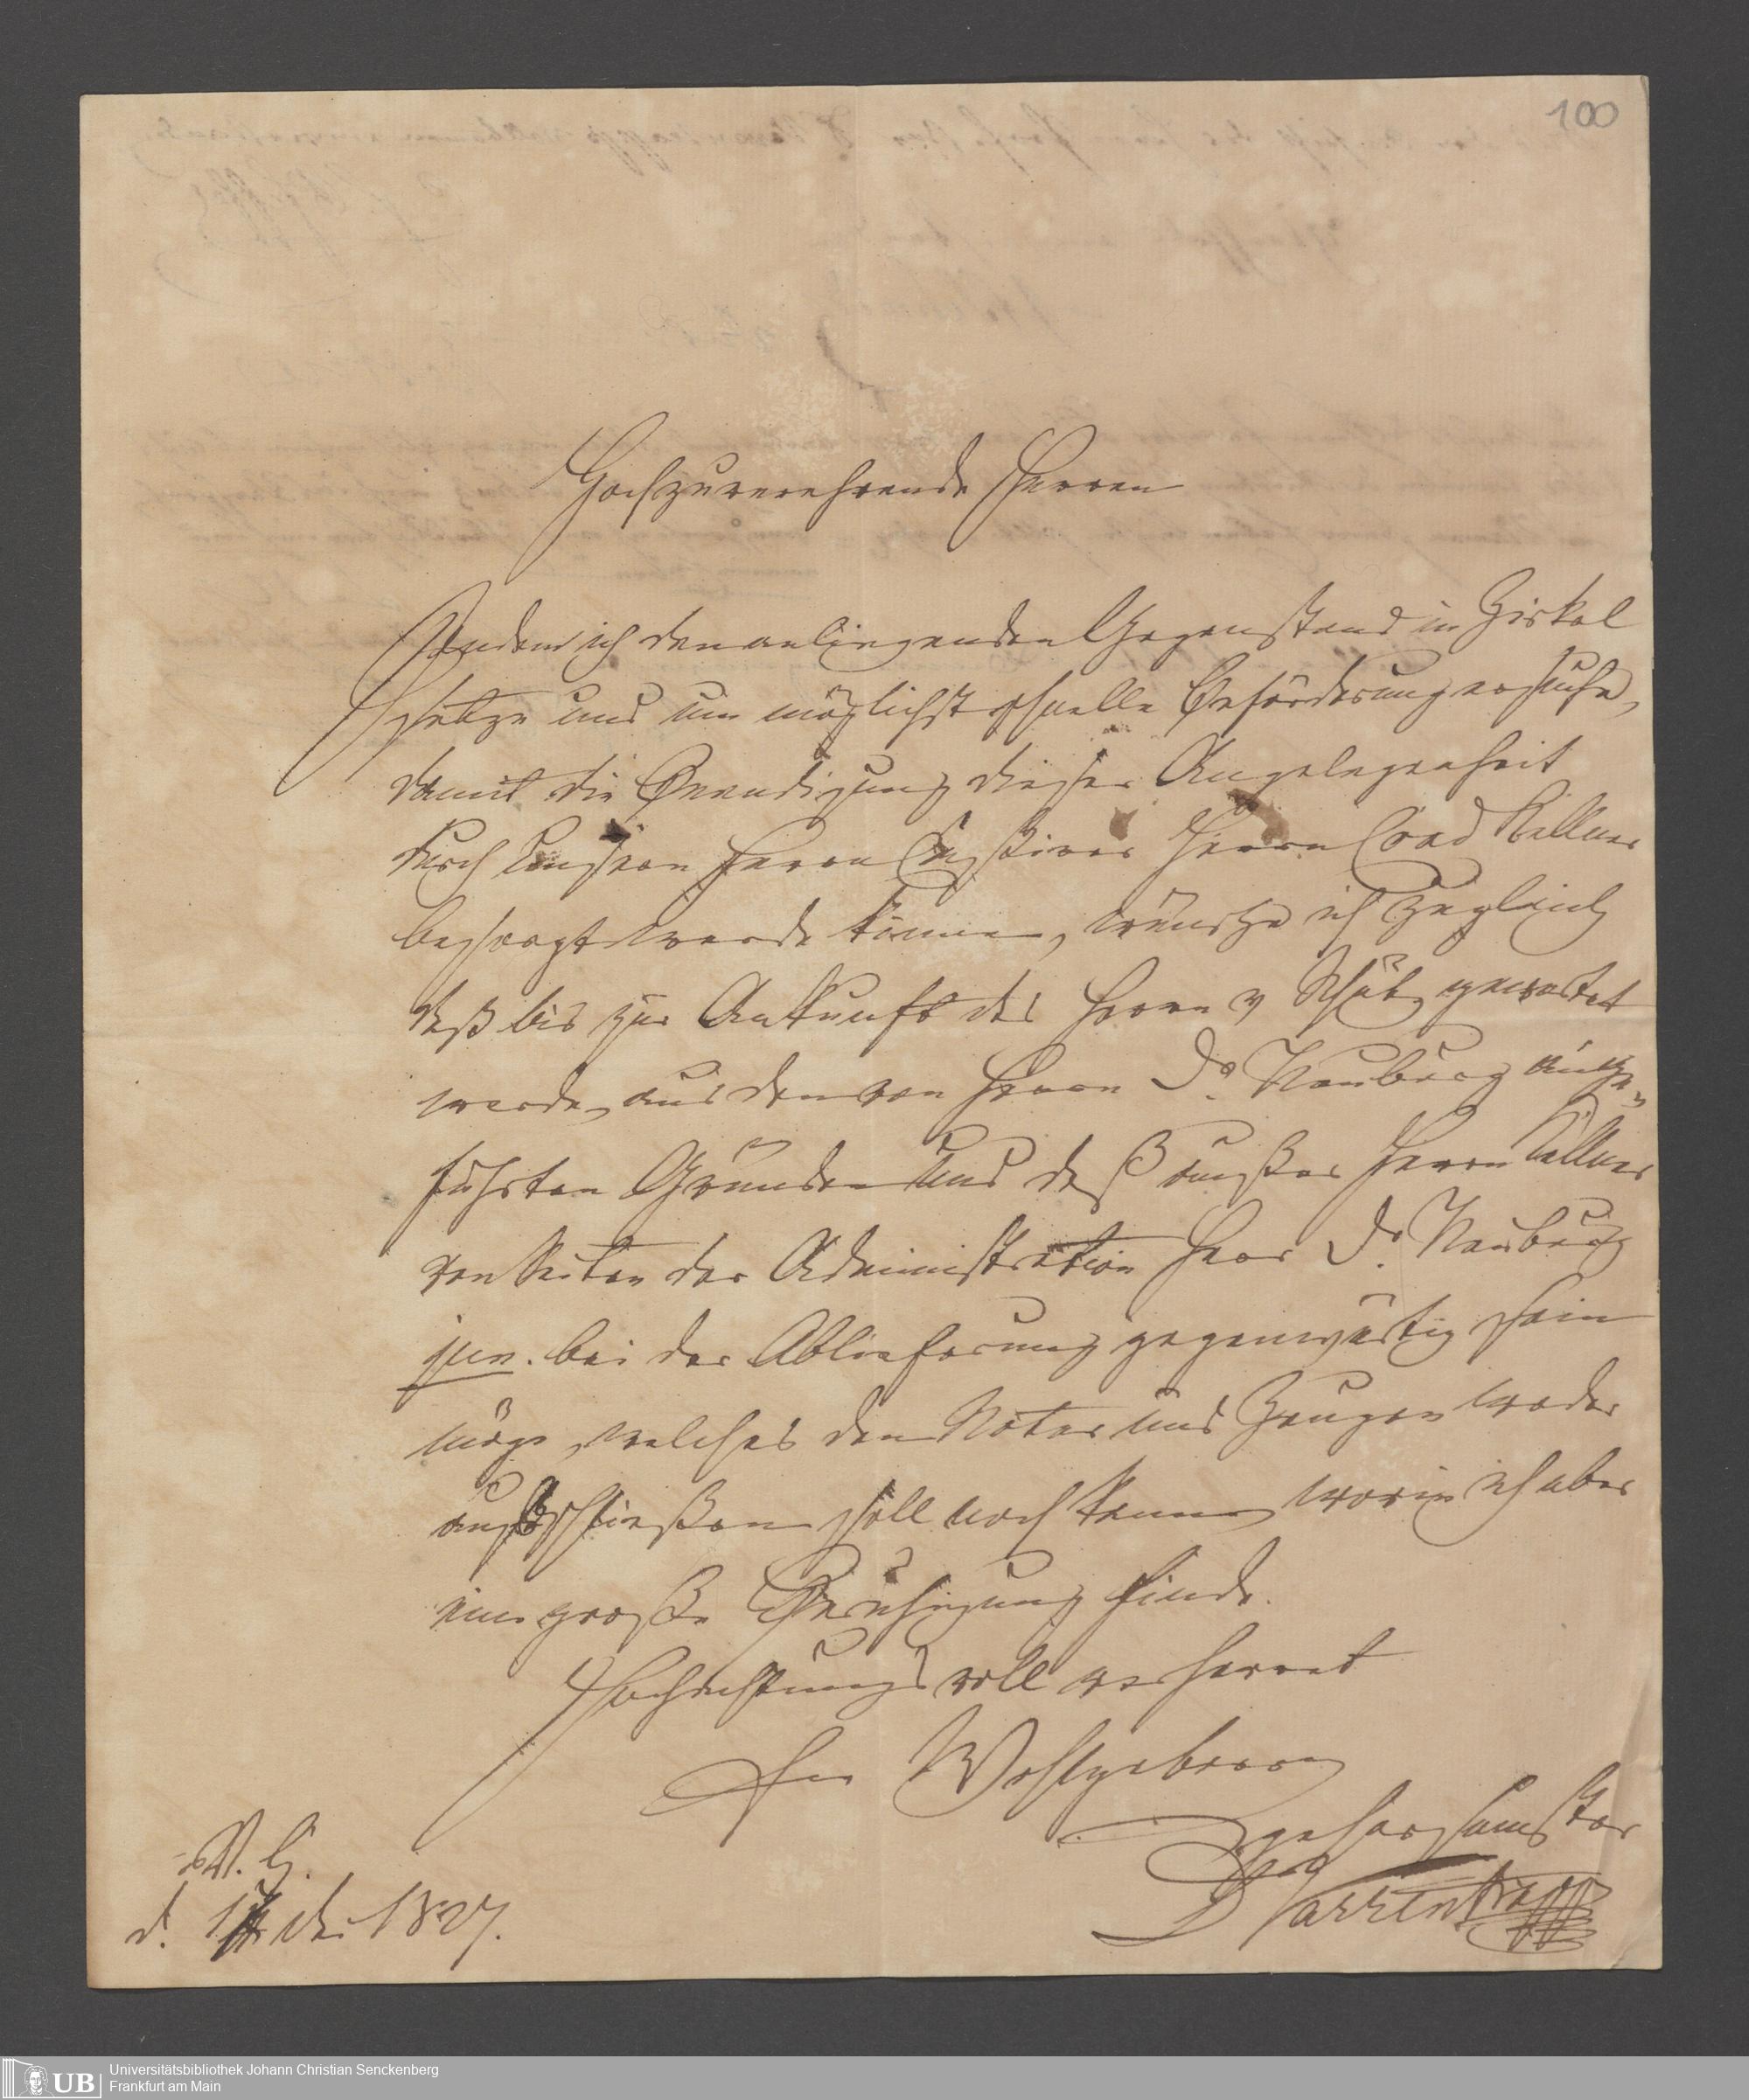 100
Hochzuverehrende Herren
Indem ich den anliegenden Gegenstand in Zirkel
setze und um möglichst schnelle Beförderung ersuche,
damit die Beendigung dieser Angelegenheit
durch unsern Herrn Herrn Cand Kellner
besorgt werde könne, wünsche ich zugleich
daß bis zur Ankunft des Herrn v gewartet
werde, aus den von Herrn Dr. Neuburg ange-
führten Gründen und daß außer Herrn Kellner
von Seiten der Administration Herr Dr. Neuburg
jun. bei der Ablieferung gegenwärtig sein
möge, welches den Notar und Zeugen weder
ausschließen soll noch kann worin ich aber
eine große Beruhigung finde.
Hochachtungsvoll verharret
Euer Wohlgeboren
gehorsamster
Varrentrapp
V. H.
d. 1827.
UB Universitätsbibliothek Johann Christian Senckenberg
Frankfurt am Main